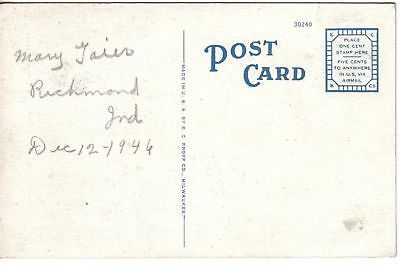 30240
Mary
Richmond
Ind
Dec 12-1946
POST
CARD
MADE IN U.S.A. BY E. C. KROPP CO., MILWAUKEE
E. C.
PLACE
ONE CENT
STAMP HERE
FIVE CENTS
TO ANYWHERE
IN U.S. VIA
AIRMAIL
K. CO.